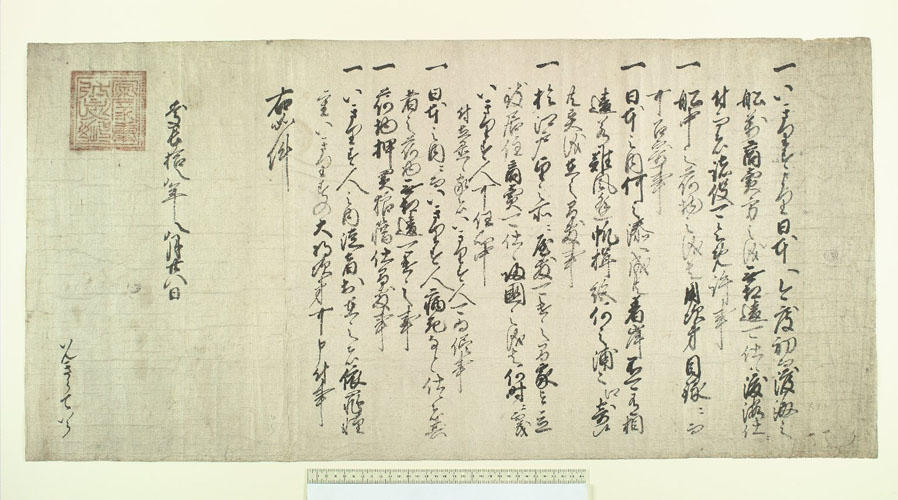 一 いきりすより日本へ今度初而渡海之
船万商売方之儀無相違可仕候渡海仕
付而ハ諸役可令免許事
一 船中之荷物之儀ハ用次第目録ニ而
可召寄事
一 日本之内何之湊へ成共着岸不可有相
違若難風逢帆楫絶何之浦々へ寄候
共異儀有之間敷事
一 於江戸望之所ニ屋敷可遣之間家を立
致居住商売可仕候帰国之儀ハ何時ニ而も
いきりす人可任心中
付立置候家ハいきりす人可為儘事
一 日本之内ニ而いきりす人病死なと仕候者其
者之荷物無相違可遣之事
一 荷物押買狼藉仕間敷事
一 いきりす人之内徒者於有之者依罪軽
重いきりすの大将次第可申付事
右如件
慶長拾八年八月廿八日
いんきらていら